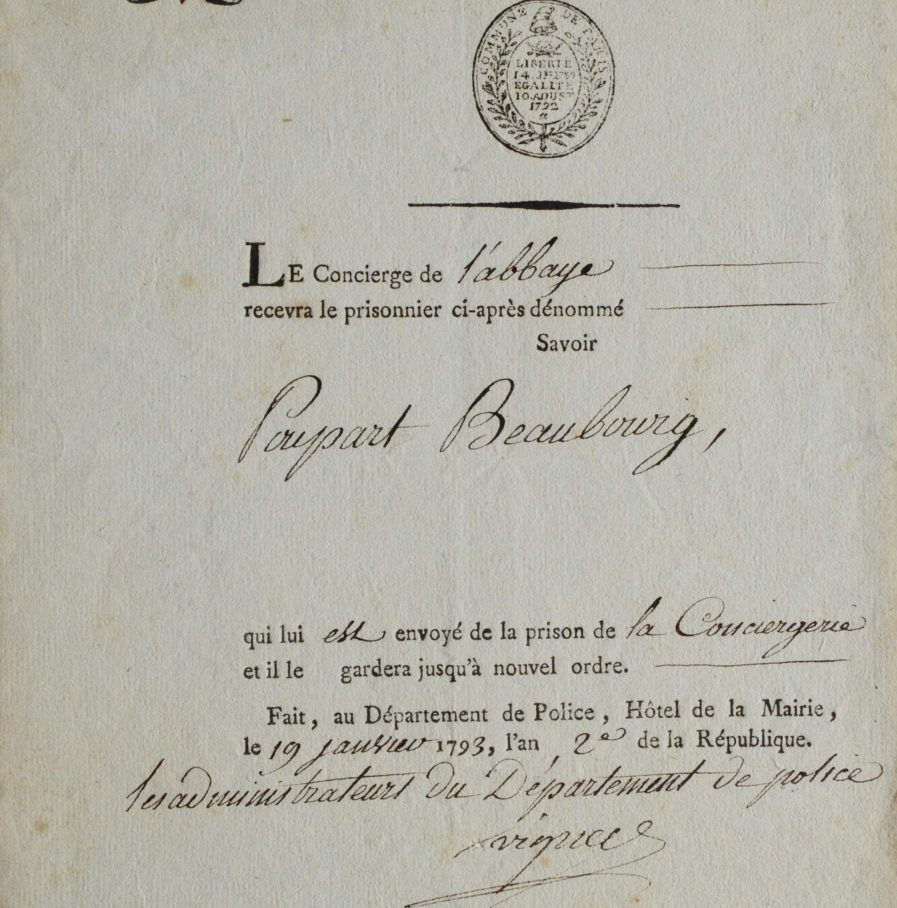 COMMUNE DE PARIS
LIBERTE
14 JET 1789
EGALITE
10 AOUST
1792
LE Concierge de l'abbaye
recevra le prisonnier ci-après dénommé
Savoir
Poupart Beaubourg,
qui lui est envoyé de la prison de la Conciergerie
et il le gardera jusqu'à nouvel ordre.
Fait, au Département de Police, Hôtel de la Mairie,
le 19 janvier 1793, l'an 2e de la République.
les administrateurs du Département de police